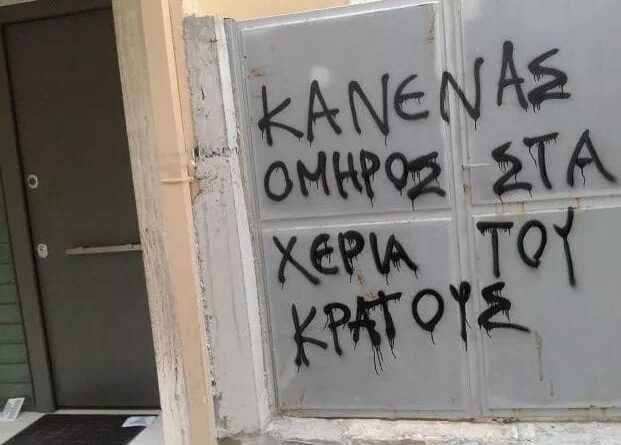 ΚΑΝΕΝΑΣ
ΟΜΗΡΟΣ ΣΤΑ
ΧΕΡΙΑ ΤΟΥ
ΚΡΑΤΟΥΣ